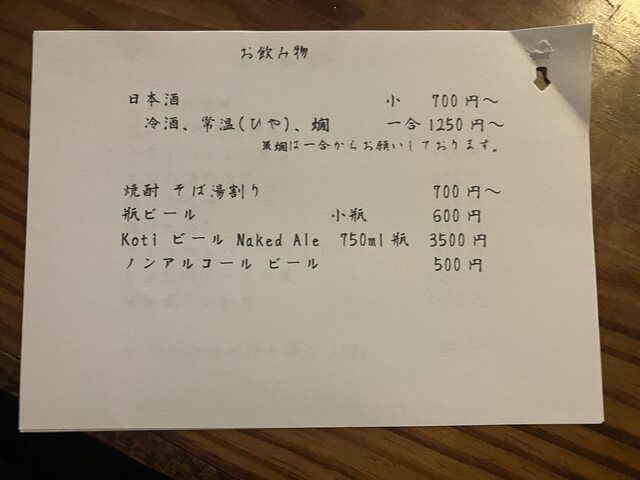 お飲み物
日本酒 小 700円〜
冷酒、常温(ひや)、燗 一合 1250円〜
※燗は一合からお願いしております。
焼酎 そば湯割り 700円〜
瓶ビール 小瓶 600円
Koti ビール Naked Ale 750ml瓶 3500円
ノンアルコール ビール 500円